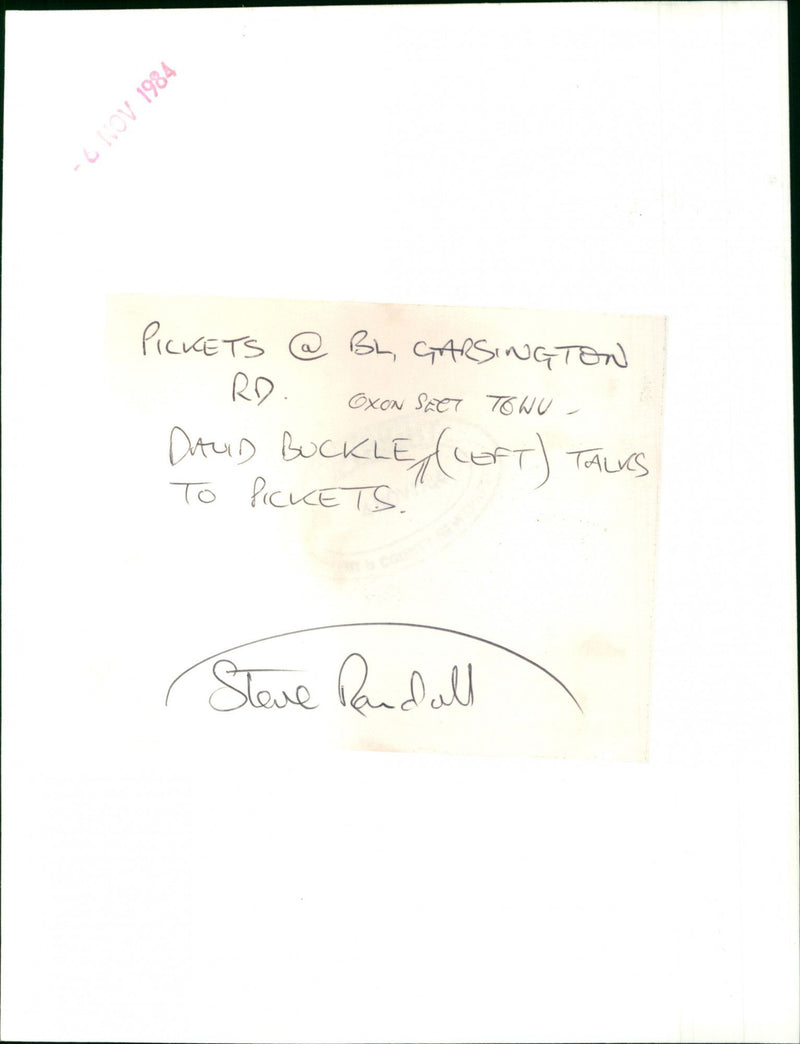 - 6 NOV 1984
PICKETS @ BL, GARSINGTON
RD.
OXON SECT TGWU -
DAVID BUCKLE ↑ (LEFT) TALKS
TO PICKETS.
Steve Randall